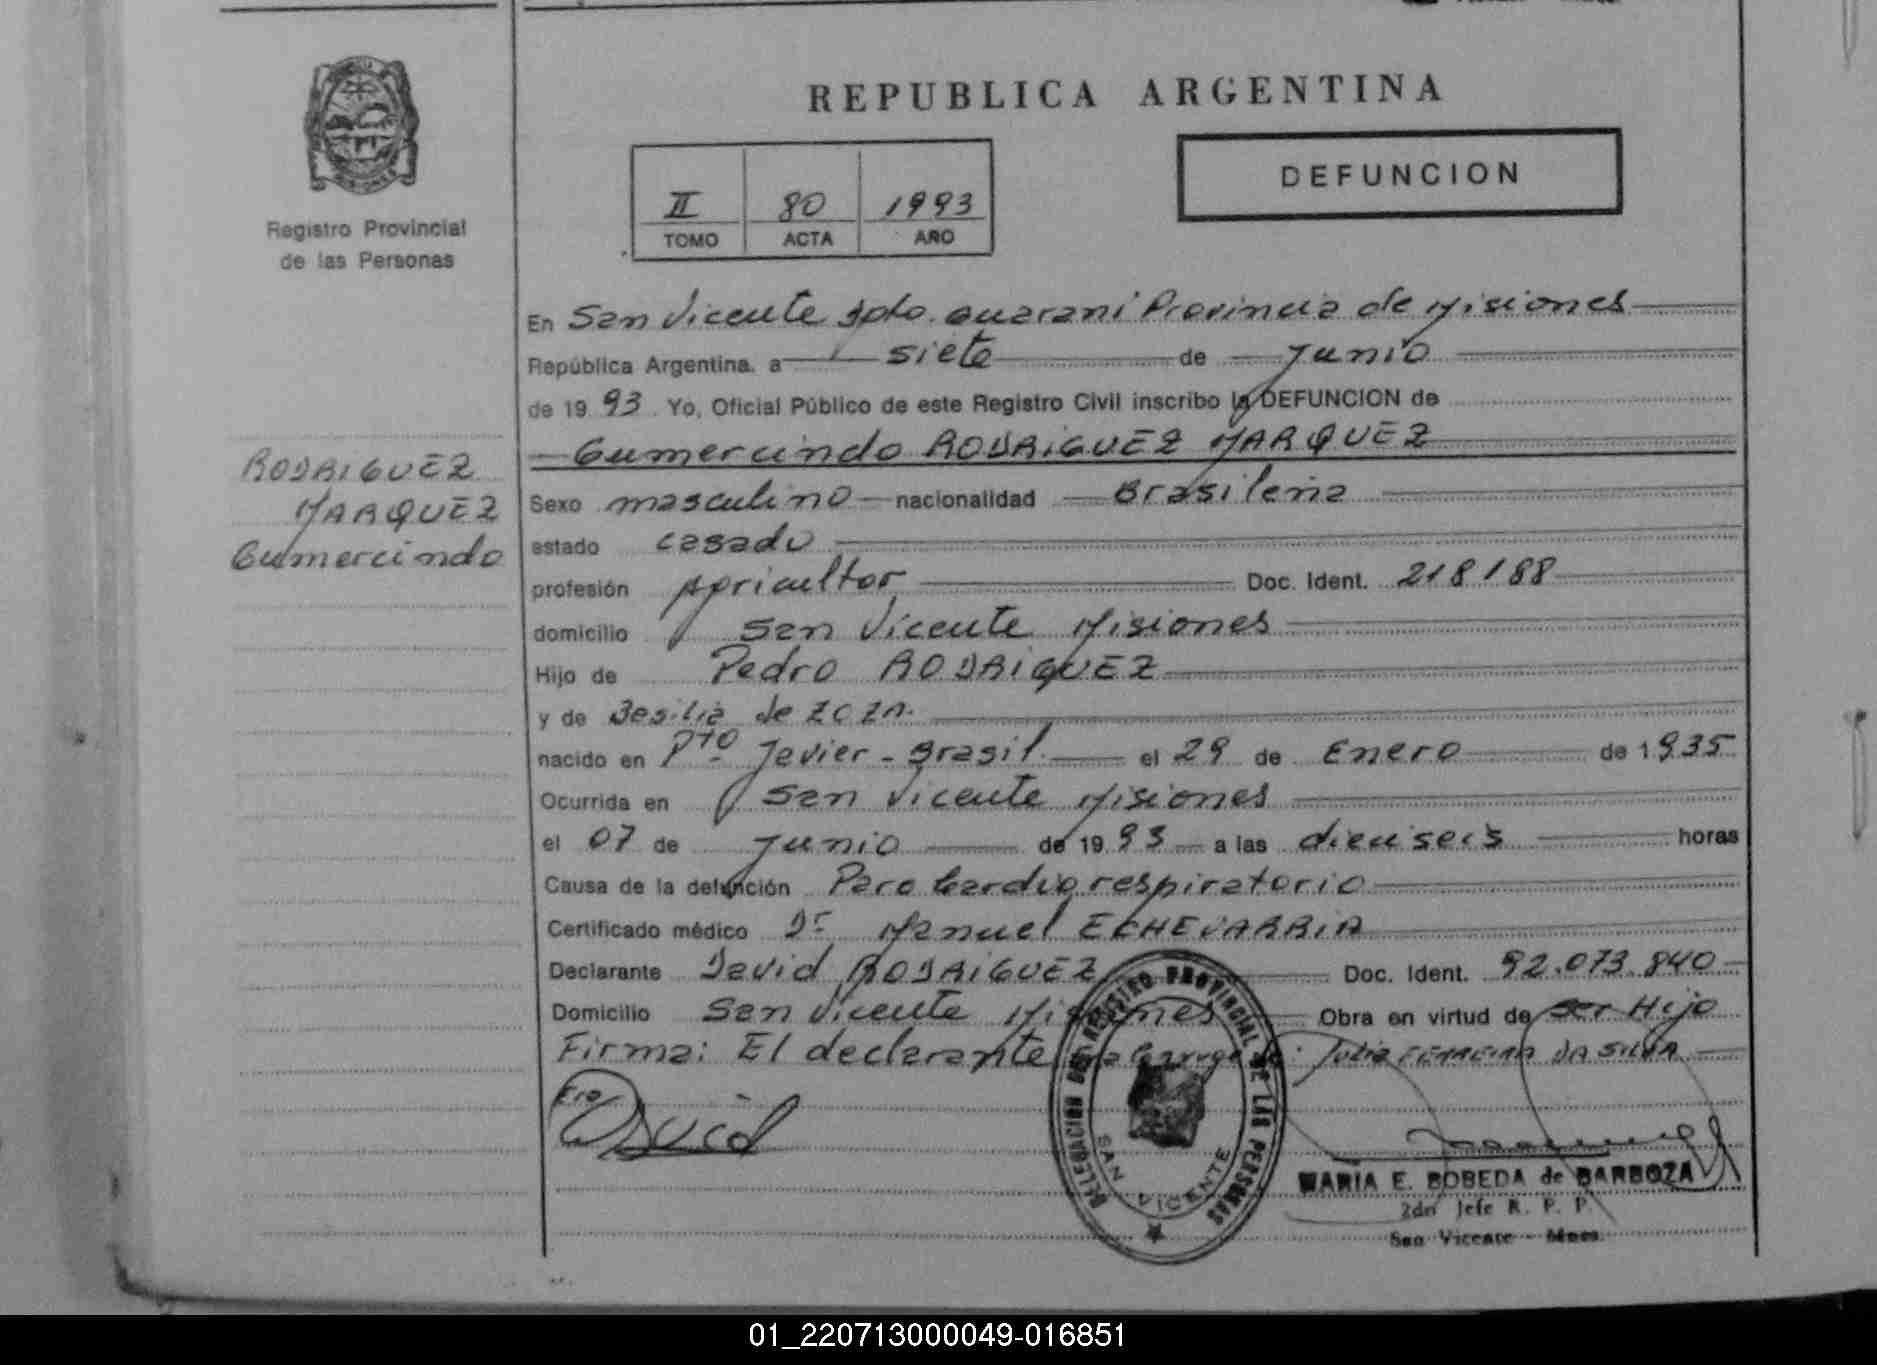 REPUBLICA ARGENTINA
DEFUNCION
II 80 1993
TOMO ACTA AÑO
Registro Provincial
de las Personas
RODRIGUEZ
MARQUEZ
Gumercindo
En San Vicente Dpto. Guarani Provincia de Misiones
República Argentina, a siete de Junio
de 19 93. Yo, Oficial Público de este Registro Civil inscribo la DEFUNCION de
Gumercindo RODRIGUEZ MARQUEZ
Sexo masculino nacionalidad Brasileña
estado casado
profesión Agricultor Doc. Ident. 218188
domicilio San Vicente Misiones
Hijo de Pedro RODRIGUEZ
y de de
nacido en Pto Javier - Brasil. el 29 de Enero de 1935
Ocurrida en San Vicente Misiones
el 07 de Junio de 1993 a las dieciseis horas
Causa de la defunción Paro Cardiorespiratorio
Certificado médico Dr Manuel ECHEVARRIA
Declarante David RODRIGUEZ Doc. Ident. 92.073.840
Domicilio San Vicente Misiones Obra en virtud de ser Hijo
Firma: El declarante Julia FERREIRA DA SILVA
David
DELEGACION DEL REGISTRO PROVINCIAL DE LAS PERSONAS
SAN VICENTE
MARIA E. BOBEDA de BARBOZA
2do Jefe R. P. P.
San Vicente - Mnes.
01_220713000049-016851